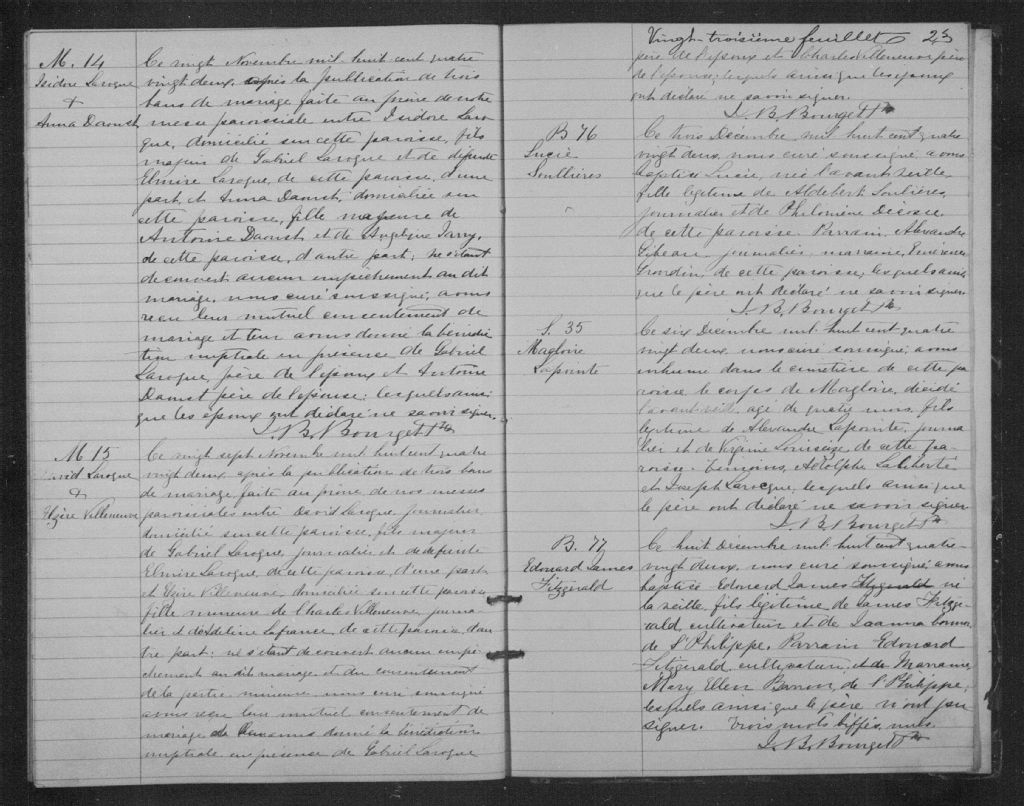 M. 14
Isidore Larogue
+
Anna Daoust
Ce vingt Novembre mil huit cent quatre
vingt deux, après la publication de trois
bans de mariage faite au prône de notre
messe paroissiale entre Isidore Laro-
gue, domicilié sur cette paroisse, fils
majeur de Gabriel Larogue et de défunte
Elmire Larogue, de cette paroisse, d'une
part, et Anna Daoust, domiciliée sur
cette paroisse, fille mageure de
Antoine Daoust et de Angeline Jarry,
de cette paroisse, d'autre part; ne s'étant
découvert aucun empêchement au dit
mariage, nous curé soussigné, avons
reçu leur mutuel consentement de
mariage et leur avons donné la bénédic
tion nuptiale en présence de Gabriel
Larogue, père de l'époux et Antoine
Daoust père de l'épouse; lesquels ainsi
que les époux ont déclaré ne savoir signer.
J. B. Bourget Ptre
M 15
David Larogue
+
Villeneuve
Ce vingt sept Novembre mil huit cent quatre
vingt deux, après la publication de trois bans
de mariage faite au prône de nos messes
paroissiales entre David Larogue, journalier,
domicilié sur cette paroisse, fils majeur
de Gabriel Larogue, journalier et de défunte
Elmire Larogue, de cette paroisse, d'une part
et Villeneuve, domiciliée sur cette paroisse
fille mineure de Charles Villeneuve, journa-
lier et d'Adeline Lafrance, de cette paroisse d'au
tre part; ne s'étant découvert aucun empê-
chement au dit mariage et du consentement
de la partie mineure nous curé soussigné
avons reçu leur mutuel consentement de
mariage donné la bénédiction
nuptiale en présence de Gabriel Larogue
Vingt-troisième feuillet 23
père de l'époux et Charles Villeneuve père
de l'épouse; lesquels ainsi que les époux
ont déclaré ne savoir signer.
J. B. Bourget Ptre
B 76
Lucie
Soullieres
Ce trois Décembre mil huit cent quatre
vingt deux, nous curé soussigné, avons
baptisé Lucie, née l'avant veille
fille légitime de Aldebert Soulières,
journalier et de Philomène Décosse
de cette paroisse. Parrain, Alexandre
journalier, marraine,
Grondin, de cette paroisse, lesquels ainsi
que le père ont déclaré ne savoir signer.
J. B. Bourget Ptre
S. 35
Magloire
Lapointe
Ce six Décembre mil huit cent quatre
vingt deux, nous curé soussigné, avons
inhumé dans le cimetière de cette pa
roisse le corps de Magloire, décédé
l'avant veille, agé de quatre mois, fils
légitime de Alexandre Lapointe, journa
lier et de Virginie de cette pa-
roisse. Témoins, Adolphe Laliberté
et Joseph Larocque, lesquels ainsi que
le père ont déclaré ne savoir signer
J. B. Bourget Ptre
B. 77
Edouard James
Fitzgerald
Ce huit Décembre mil huit cent quatre-
vingt deux, nous curé soussigné avons
baptisé Edouard James Fitzgerald né
la veille, fils légitime de James Fitzge-
rald, cultivateur et de Joanna
de St Philippe. Parrain Edouard
Fitzgerald cultivateur et de Marraine
Mary Ellen de St Philippe,
lesquels ainsi que le père n'ont pu
signer. Trois mots biffés nuls.
J. B. Bourget Ptre